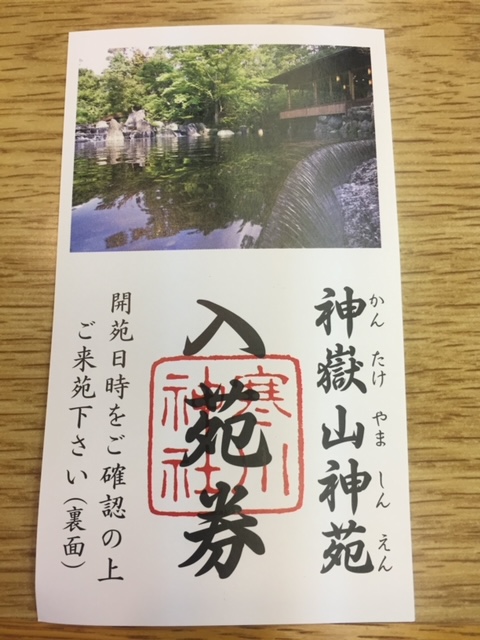 神嶽山神苑
かんたけやましんえん
入苑券
寒川
神社
開苑日時をご確認の上
ご来苑下さい(裏面)